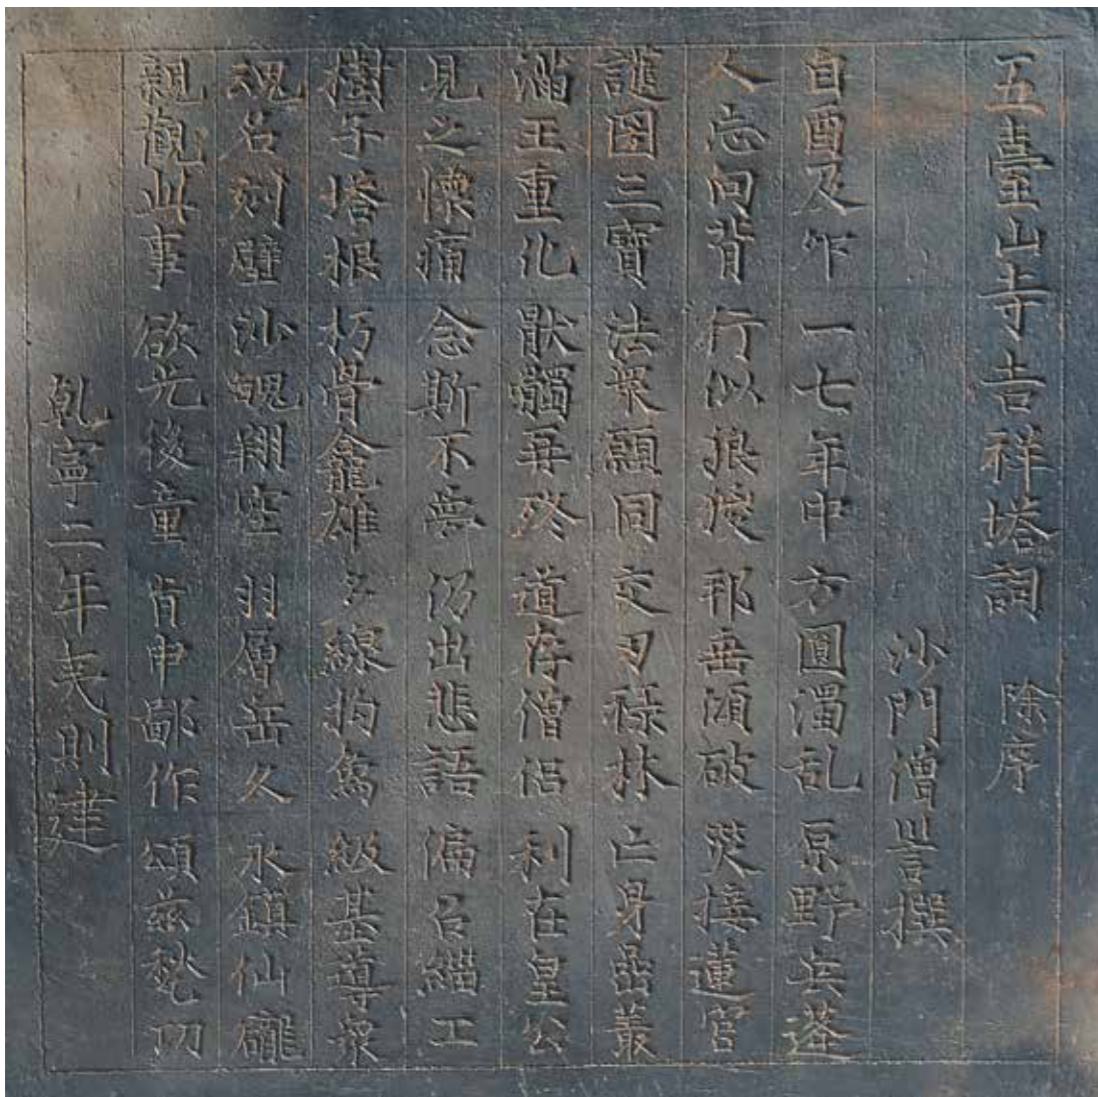 五臺山寺吉祥塔詞 除序
沙門僧訔撰
自酉及乍 一七年中 方圓濁乱 原野兵蓬
人忘向背 行似狼㹳 邦垂傾破 災接蓮宮
護国三寶 法衆願同 交刃祿林 亡身嵒叢
濫王重化 猒髑再終 道存僧侶 利在皇公
見之懷痛 念斯不夢 仍出悲語 偏召緇工
樹子塔根 朽骨龕雄 多線拘㑺 級基導衆
魂名刻壁 沙魄翔空 羽層岳久 永鎮仙礲
親觀此事 欲先後童 肯申鄙作 頌玆㔟㓛
乹寧二年夷則建